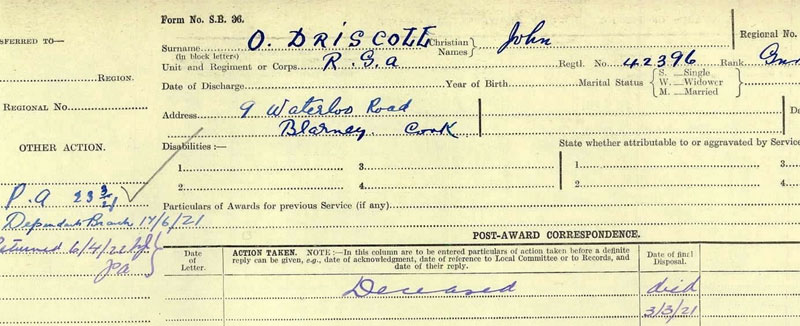 Form No. S.B. 36.
SFERRED TO—
Surname O. DRISCOLL Christian Names John
(in block letters)
Regional No.
Unit and Regiment or Corps R.G.A Regtl. No. 42396 Rank Gn
REGION.
Date of Discharge Year of Birth Marital Status S. Single W. Widower M. Married
REGIONAL NO
Address 9 Waterloo Road
Blarney Cork
OTHER ACTION.
Disabilities :— State whether attributable to or aggravated by Service
1. 3. 1. 3.
2. 4. 2. 4.
P.A 23
Particulars of Awards for previous Service (if any)
Dependants Branch 17/6/21
POST-AWARD CORRESPONDENCE.
eturned 6/4/22
Date of Letter.
ACTION TAKEN. NOTE :—In this column are to be entered particulars of action taken before a definite
reply can be given, e.g., date of acknowledgment, date of reference to Local Committee or to Records, and
date of their reply.
Date of final Disposal.
Deceased died
3/3/21